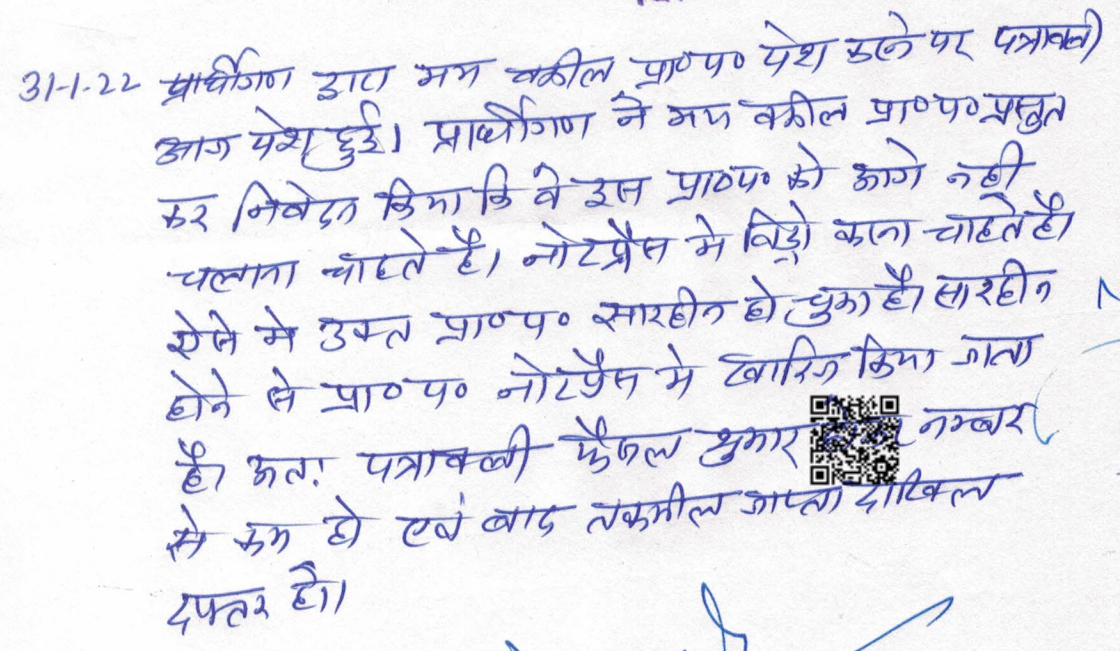 31-1-22 प्रार्थीगण द्वारा मय वकील प्रा०प० पेश करने पर पत्रावली
आज पेश हुई। प्रार्थीगण ने मय वकील प्रा०प० प्रस्तुत
कर निवेदन किया कि वे इस प्रा०प० को आगे नही
चलाना चाहते है। नोटप्रैस मे विड्रो करना चाहते है।
ऐसे मे उक्त प्रा०प० सारहीन हो चुका है। सारहीन
होने से प्रा०प० नोटप्रैस मे खारिज किया जाता
है। अतः पत्रावली फैजल शुमार नम्बर
से कम हो एवं बाद तकमील जाप्ता दाखिल
दफ्तर हो।